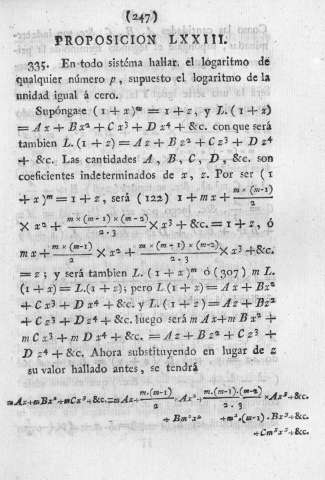 (247)
PROPOSICION LXXIII.
335. En todo sistéma hallar. el logaritmo de
qualquier número p, supuesto el logaritmo de la
unidad igual á cero.
Supóngase (1 + x)ᵐ = 1 + z, y L. (1 + x)
= A x + B x² + C x³ + D x⁴ + &c. con que será
tambien L. (1 + z) = A z + B z² + C z³ + D z⁴
+ &c. Las cantidades A, B, C, D, &c. son
coeficientes indeterminados de x, z. Por ser (1
+ x)ᵐ = 1 + z, será (122) 1 + m x + m × (m-1)/2
× x² + m × (m-1) × (m-2)/2 . 3 × x³ + &c. = 1 + z, ó
m x + m × (m-1)/2 × x² + m × (m-1) × (m-2)/2 . 3 × x³ + &c.
= z; y será tambien L. (1 + x)ᵐ ó (307) m L.
(1 + x) = L. (1 + z); pero L (1 + x) = A x + B x²
+ C x³ + D x⁴ + &c. y L. (1 + z) = A z + B z²
+ C z³ + D z⁴ + &c. luego será m A x + m B x² +
m C x³ + m D x⁴ + &c. = A z + B z² + C z³ +
D z⁴ + &c. Ahora substituyendo en lugar de z
su valor hallado antes, se tendrá
m A x + m B x² + m C x³ + &c. = m A x + m.(m-1)/2 × A x² + m.(m-1).(m-2)/2 . 3 × A x³ + &c.
+ B m² x² + m².(m-1).B x³ + &c.
+ C m³ x³ + &c.